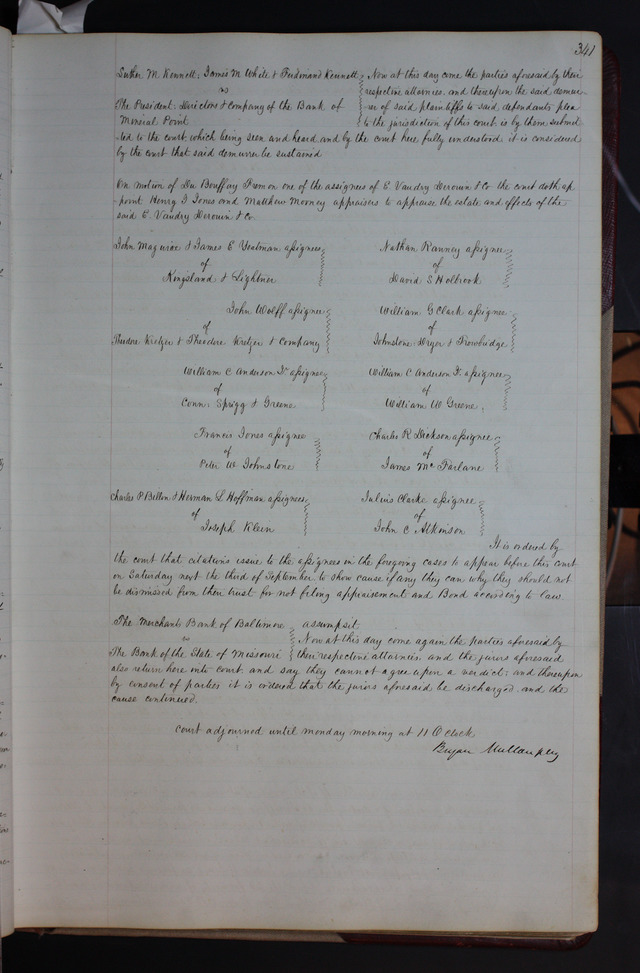 341
Luther M. Kennett, James M White & Ferdinand Kennett } Now at this day come the parties aforesaid by their
vs } respective attornies, and thereupon the said demur-
The President, Directors & Company of the Bank of } rer of said plaintiffs to said defendants plea
Mineral Point } to the jurisdiction of this court is by them submit
-ted to the court, which being seen and heard and by the court here fully understood it is considered
by the court that said demurrer be sustained
On motion of one of the assignees of E. Vaudry Derouin & Co the court doth ap
-point Henry J Jones and Matthew Mooney appraisers to appraise the estate and effects of the
said E. Vaudry Derouin & Co.
John Maguire & James E Yeatman assignees
of
Kingsland & Lightner
Nathan Ranney assignee
of
David S Holbrook
John Wolff assignee
of
Theodore Kretzer & Theodore Kretzer & Company
William G Clark assignee
of
Johnstone Dryer & Trowbridge
William C Anderson Jr assignee
of
Conn, Sprigg & Greene
William C Anderson Jr assignee
of
William W Greene,
Francis Jones assignee
of
Peter W Johnstone
Charles R Dickson assignee
of
James Mc Farlane
Charles P Billon & Herman L Hoffman assignees
of
Joseph Klein
Julius Clarke assignee
of
John C Atkinson
It is ordered by
the court that citations issue to the assignees in the foregoing cases to appear before this court
on Saturday next the third of September to show cause if any they can why they should not
be dismissed from their trust for not filing appraisement and Bond according to law
The Merchants Bank of Baltimore } assumpsit
vs } Now at this day come again the parties aforesaid by
The Bank of the State of Missouri } their respective attornies and the jurors aforesaid
also return here into court and say they cannot agree upon a verdict; and thereupon
by consent of parties it is ordered that the jurors aforesaid be discharged and the
cause continued.
Court adjourned until monday morning at 11 O clock
Bryan Mullanphy